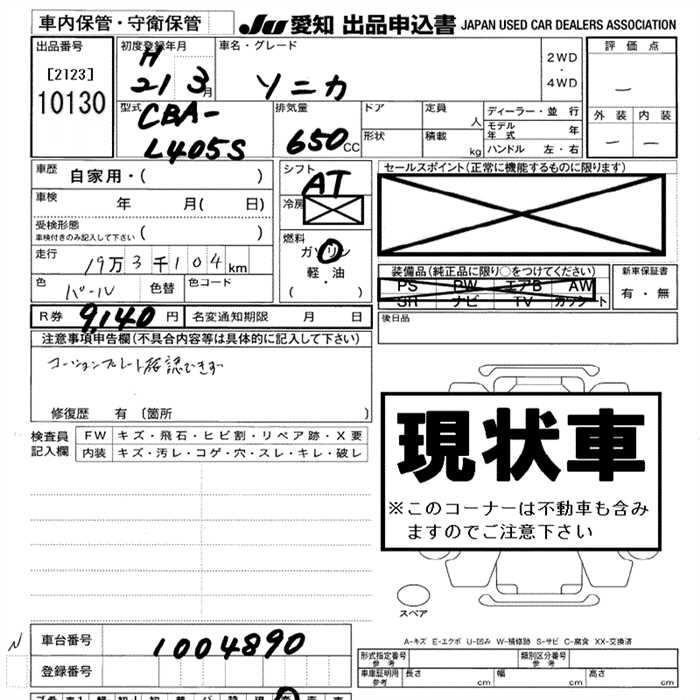 車内保管・守衛保管 JU 愛知 出品申込書 JAPAN USED CAR DEALERS ASSOCIATION
出品番号 初度登録年月 車名・グレード 評価点
[2123] H 2WD
10130 21 3月 ソニカ ・ ー
4WD
型式 排気量 ドア 定員 ディーラー・並行 外装 内装
CBA- 人 モデル年式 年 ー ー
L405S 650CC 形状 積載 kg ハンドル 左・右
車歴 自家用・( ) シフト セールスポイント(正常に機能するものに限ります)
AT
車検 年 月( 日) 冷房
受検形態
車検付きのみ記入して下さい ( ) 燃料
走行 ガソリン
19万3千104km 軽・油 装備品(純正品に限り○をつけてください) 新車保証書
色 パール 色替 色コード ( ・ ) PS PW エアB AW 有・無
SR ナビ TV カセット
R券 9,140円 名変通知期限 月 日 後日品
注意事項申告欄(不具合内容等は具体的に記入して下さい)
コーションプレート確認できず
修復歴 有 〔箇所 〕
検査員 FW キズ・飛石・ヒビ割・リペア跡・X要
記入欄 内装 キズ・汚レ・コゲ・穴・スレ・キレ・破レ
現状車
※このコーナーは不動車も含み
ますのでご注意下さい
スペア
A-キズ E-エクボ U-凹み W-補修跡 S-サビ C-腐食 XX-交換済
N 車台番号 1004890 形式指定番号 参考 類別区分番号 参考
登録番号 車庫証明用 参考 長さ cm 幅 cm 高さ cm